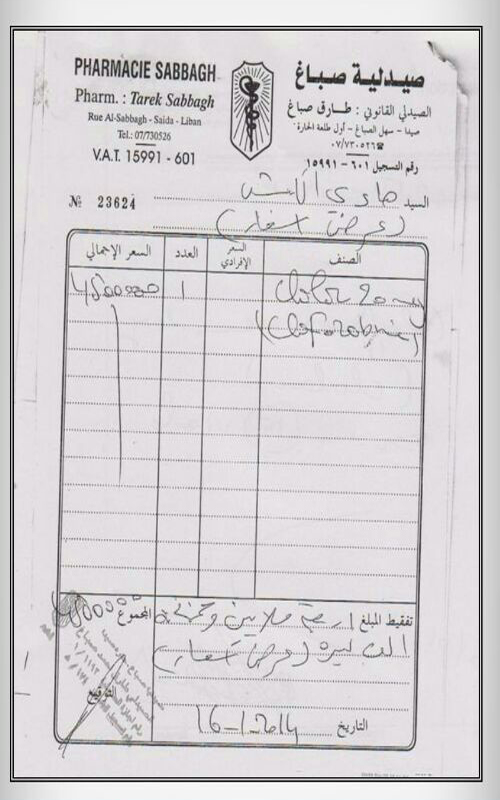 PHARMACIE SABBAGH
Pharm. : Tarek Sabbagh
Rue Al-Sabbagh - Saida - Liban
Tel.: 07/730526
V.A.T. 15991 - 601
صيدلية صباغ
الصيدلي القانوني : طارق صباغ
صيدا – سهل الصباغ – أول طلعة الحارة
٠٧/٧٣٠٥٢٦
رقم التسجيل ٦٠١ – ١٥٩٩١
№ 23624
السيد
(عرض اسعار)
الصنف
السعر الإفرادي
العدد
السعر الإجمالي
20 mg
1
4500000
(Clofarabine)
تفقيط المبلغ اربعة ملايين وخمسماية
المجموع
الف ليرة (عرض اسعار)
التوقيع
التاريخ 16-1-2014